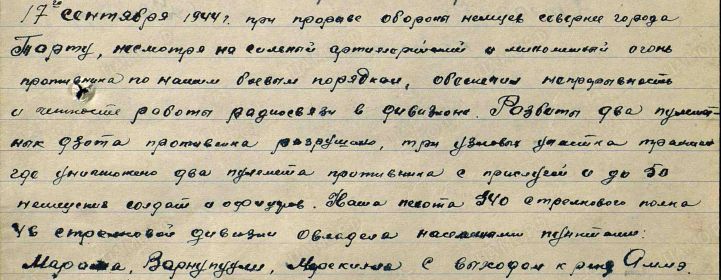 17го сентября 1944 г. при прорыве обороны немцев севернее города
Тарту, несмотря на сильный артиллерийский и минометный огонь
противника по нашим боевым порядкам, обеспечил непрерывность
и четкость работы радиосвязи в дивизионе. Разбиты два пулемет-
ных дзота противника разрушено, три узловых участка траншеи
где уничтожено два пулемета противника с прислугой и до 50
немецких солдат и офицеров. Наша пехота 340 стрелкового полка
46 стрелковой дивизии овладела населенными пунктами:
Мараста, Варнупуули, с выходом к реке Амме.